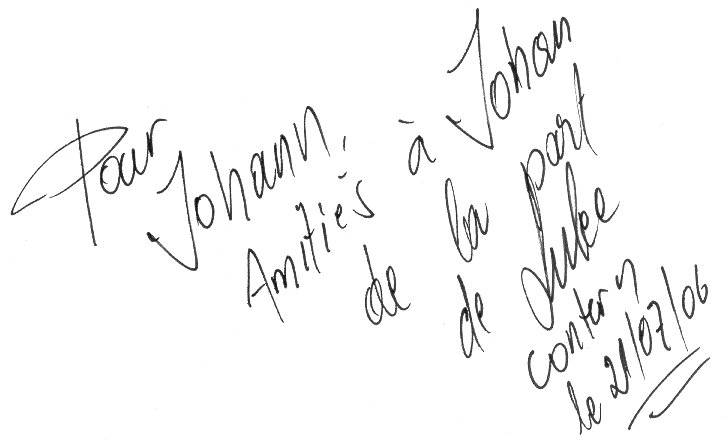 Pour
Johann,
Amitiés à Johan
de la part
de Luke
conter n
le 21/07/06